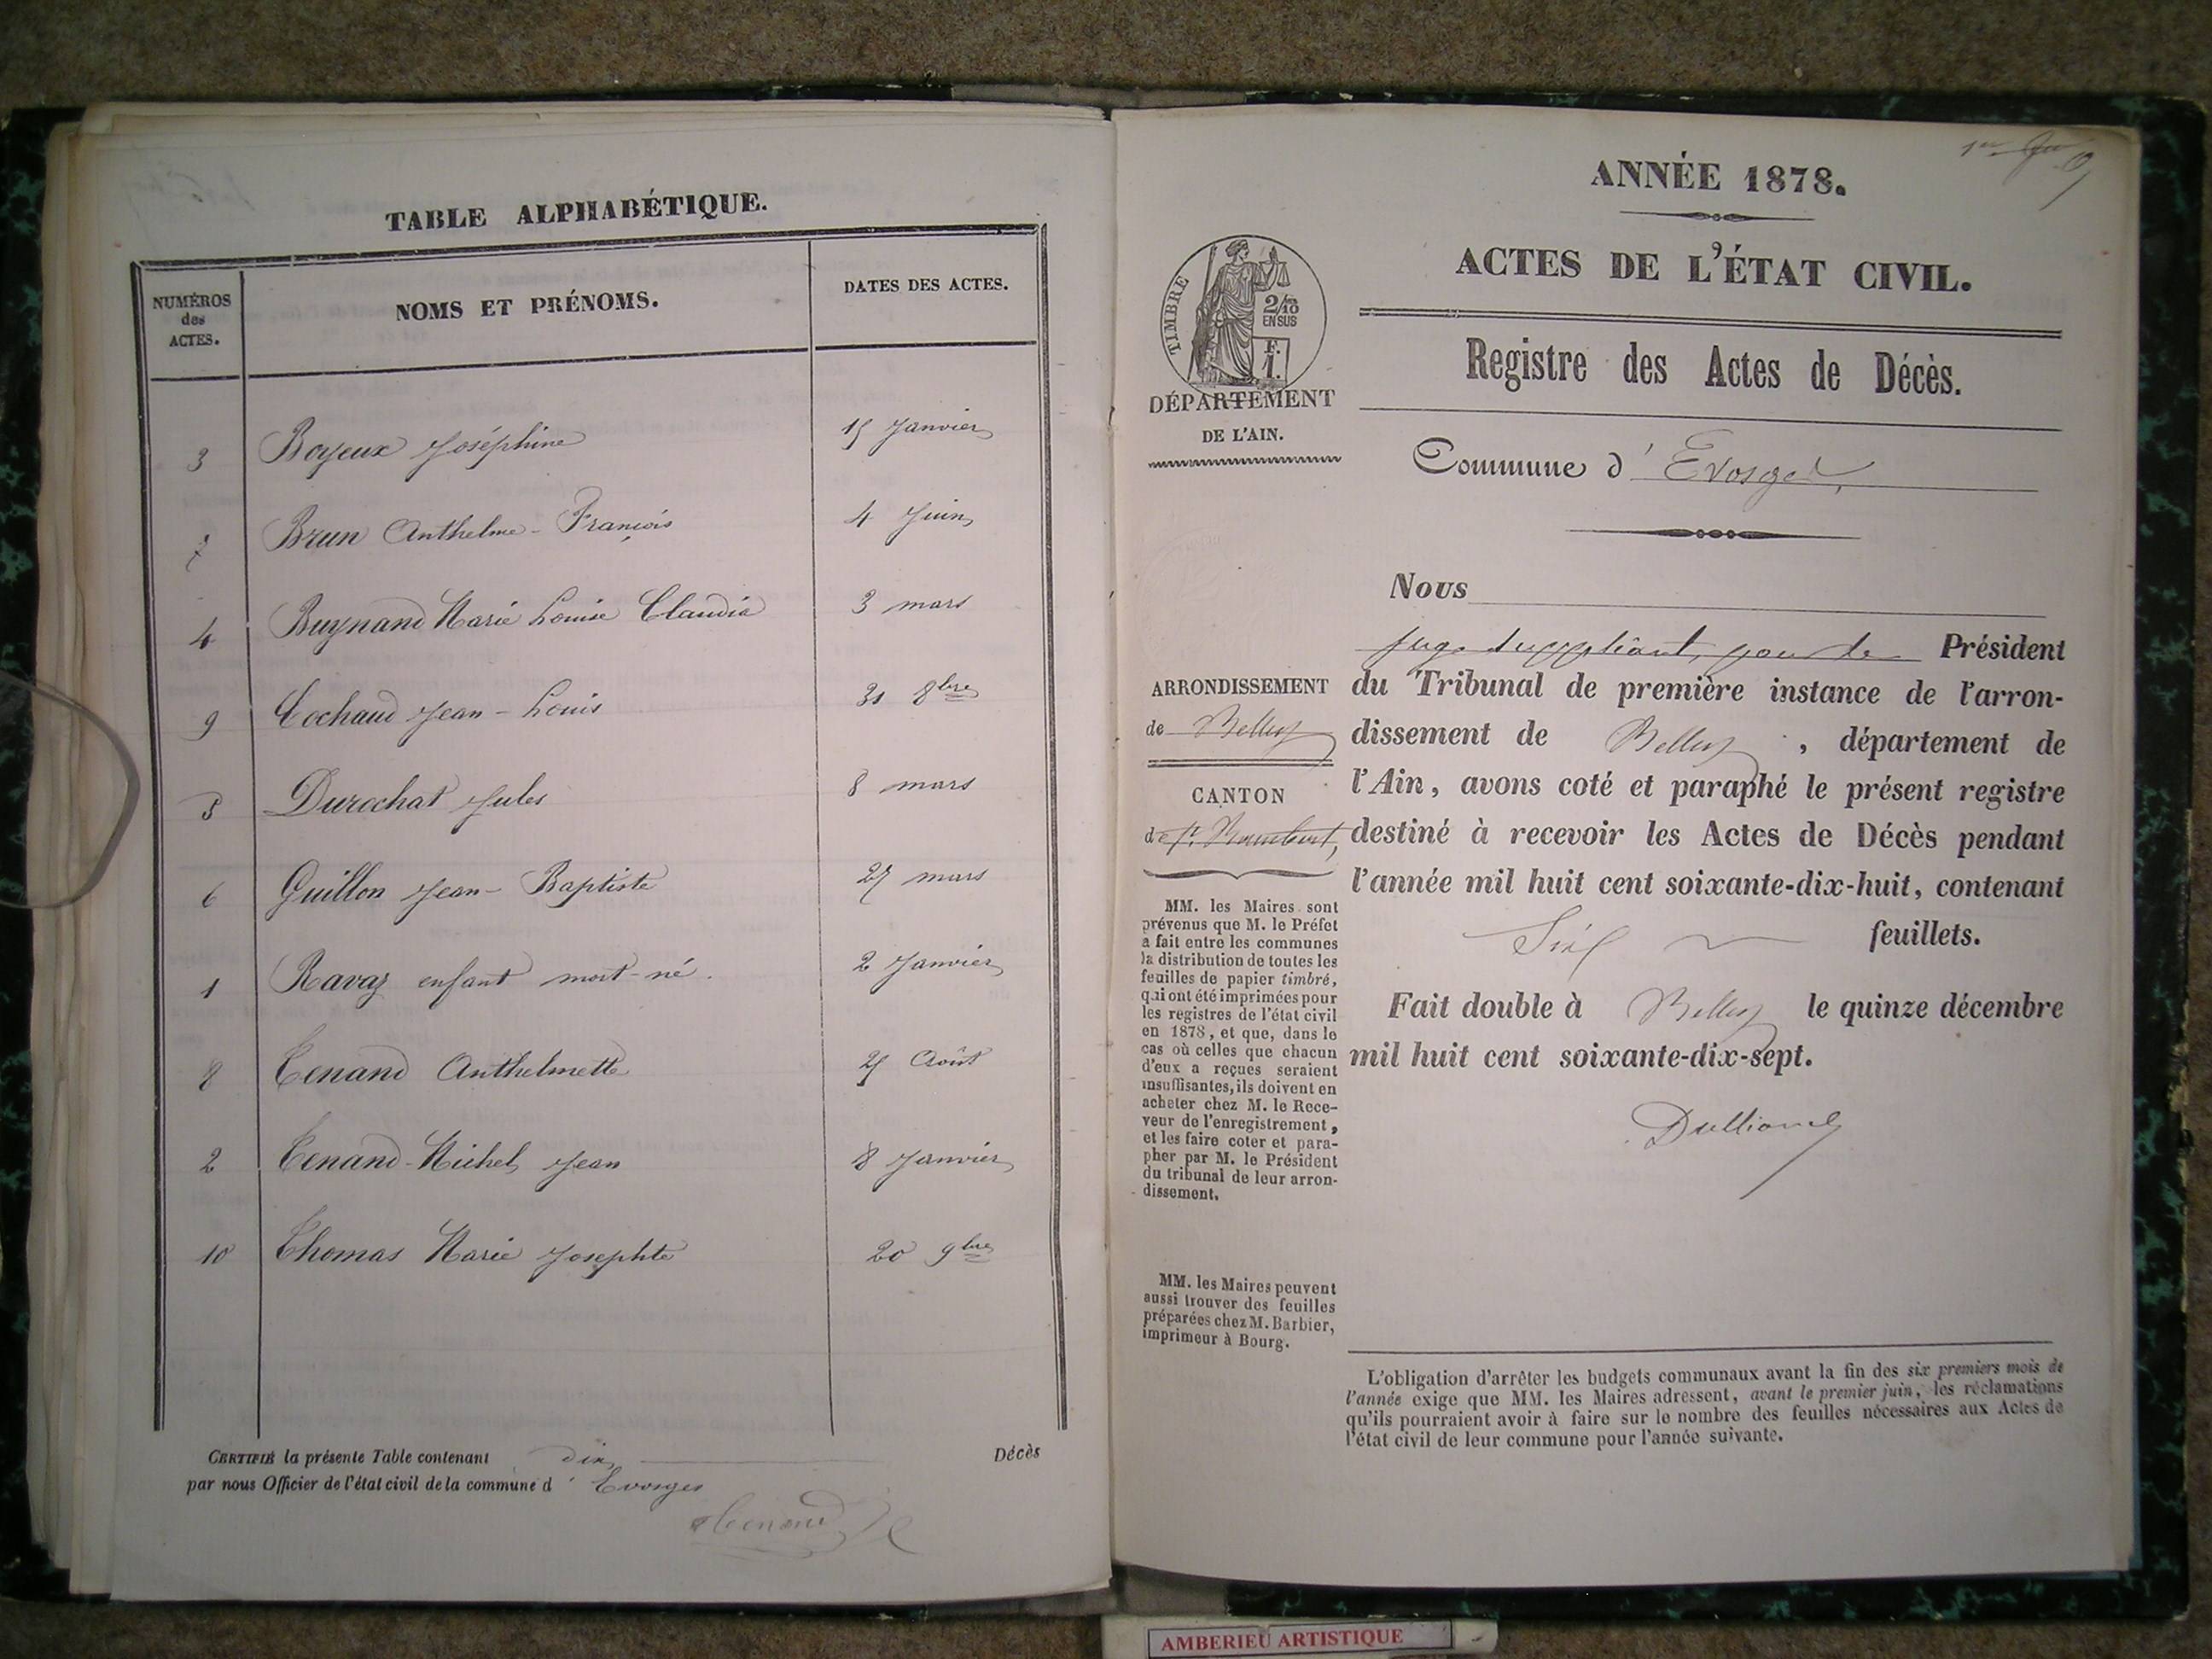 TABLE ALPHABÉTIQUE.
NUMÉROS
des
ACTES.
NOMS ET PRÉNOMS.
DATES DES ACTES.
3 Boyeux Joséphine 15 Janvier
7 Brun Anthelme-François 4 Juin
4 Buynand Marie Louise Claudia 3 mars
9 Cochaud Jean-Louis 31 8bre
5 Durochat Jules 8 mars
6 Guillon Jean-Baptiste 27 mars
1 Ravaz enfant mort-né. 2 Janvier
8 Tenand Anthelmette 25 Août
2 Tenand-Michel Jean 8 Janvier
10 Thomas Marie Josephte 20 9bre
CERTIFIÉ la présente Table contenant dix Décès
par nous Officier de l'état civil de la commune d'Evosges
Tenand
ANNÉE 1878.
ACTES DE L'ÉTAT CIVIL.
TIMBRE
2/10
EN SUS
F.
1.
Registre des Actes de Décès.
DÉPARTEMENT
DE L'AIN.
Commune d'Evosges
Nous
juge suppléant, pour le Président
du Tribunal de première instance de l'arron-
dissement de Belley, département de
l'Ain, avons coté et paraphé le présent registre
destiné à recevoir les Actes de Décès pendant
l'année mil huit cent soixante-dix-huit, contenant
Six feuillets.
Fait double à Belley le quinze décembre
mil huit cent soixante-dix-sept.
ARRONDISSEMENT
de Belley
CANTON
de St. Rambert,
MM. les Maires sont
prévenus que M. le Préfet
a fait entre les communes
la distribution de toutes les
feuilles de papier timbré,
qui ont été imprimées pour
les registres de l'état civil
en 1878, et que, dans le
cas où celles que chacun
d'eux a reçues seraient
insuffisantes, ils doivent en
acheter chez M. le Rece-
veur de l'enregistrement,
et les faire coter et para-
pher par M. le Président
du tribunal de leur arron-
dissement.
MM. les Maires peuvent
aussi trouver des feuilles
préparées chez M. Barbier,
imprimeur à Bourg.
L'obligation d'arrêter les budgets communaux avant la fin des six premiers mois de
l'année exige que MM. les Maires adressent, avant le premier juin, les réclamations
qu'ils pourraient avoir à faire sur le nombre des feuilles nécessaires aux Actes de
l'état civil de leur commune pour l'année suivante.
AMBERIEU ARTISTIQUE